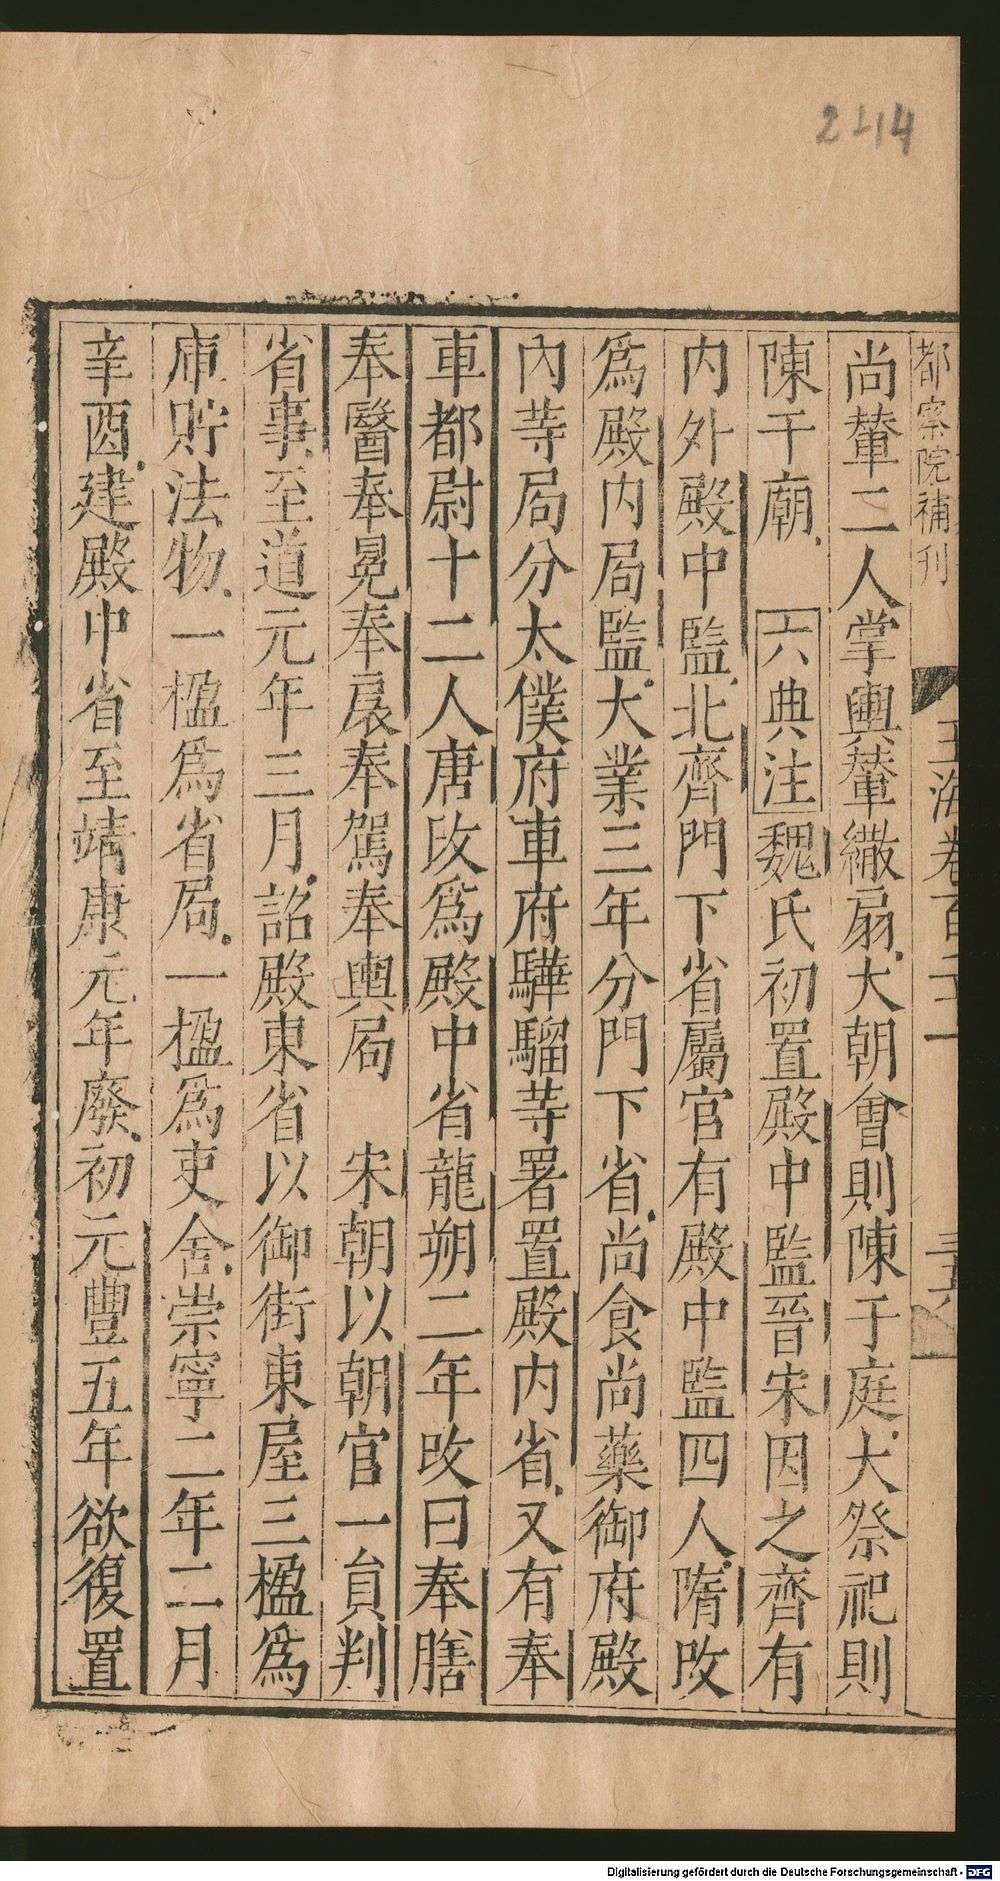 244
都察院補刊
玉海卷百二十一
尚輦二人掌輿輦繖扇大朝會則陳于庭大祭祀則
陳于廟 六典注魏氏初置殿中監晉宋因之齊有
内外殿中監北齊門下省屬官有殿中監四人隋改
爲殿内局監大業三年分門下省尚食尚藥御府殿
內䓁局分太僕府車府驊騮䓁署置殿内省又有奉
車都尉十二人唐改爲殿中省龍朔二年改曰奉膳
奉醫奉冕奉扆奉駕奉輿局 宋朝以朝官一員判
省事至道元年三月詔殿東省以御街東屋三楹爲
庫貯法物一楹爲省局一楹爲吏舍崇寧二年二月
辛酉建殿中省至靖康元年廢初元豐五年欲復置
Digitalisierung gefördert durch die Deutsche Forschungsgemeinschaft - DFG